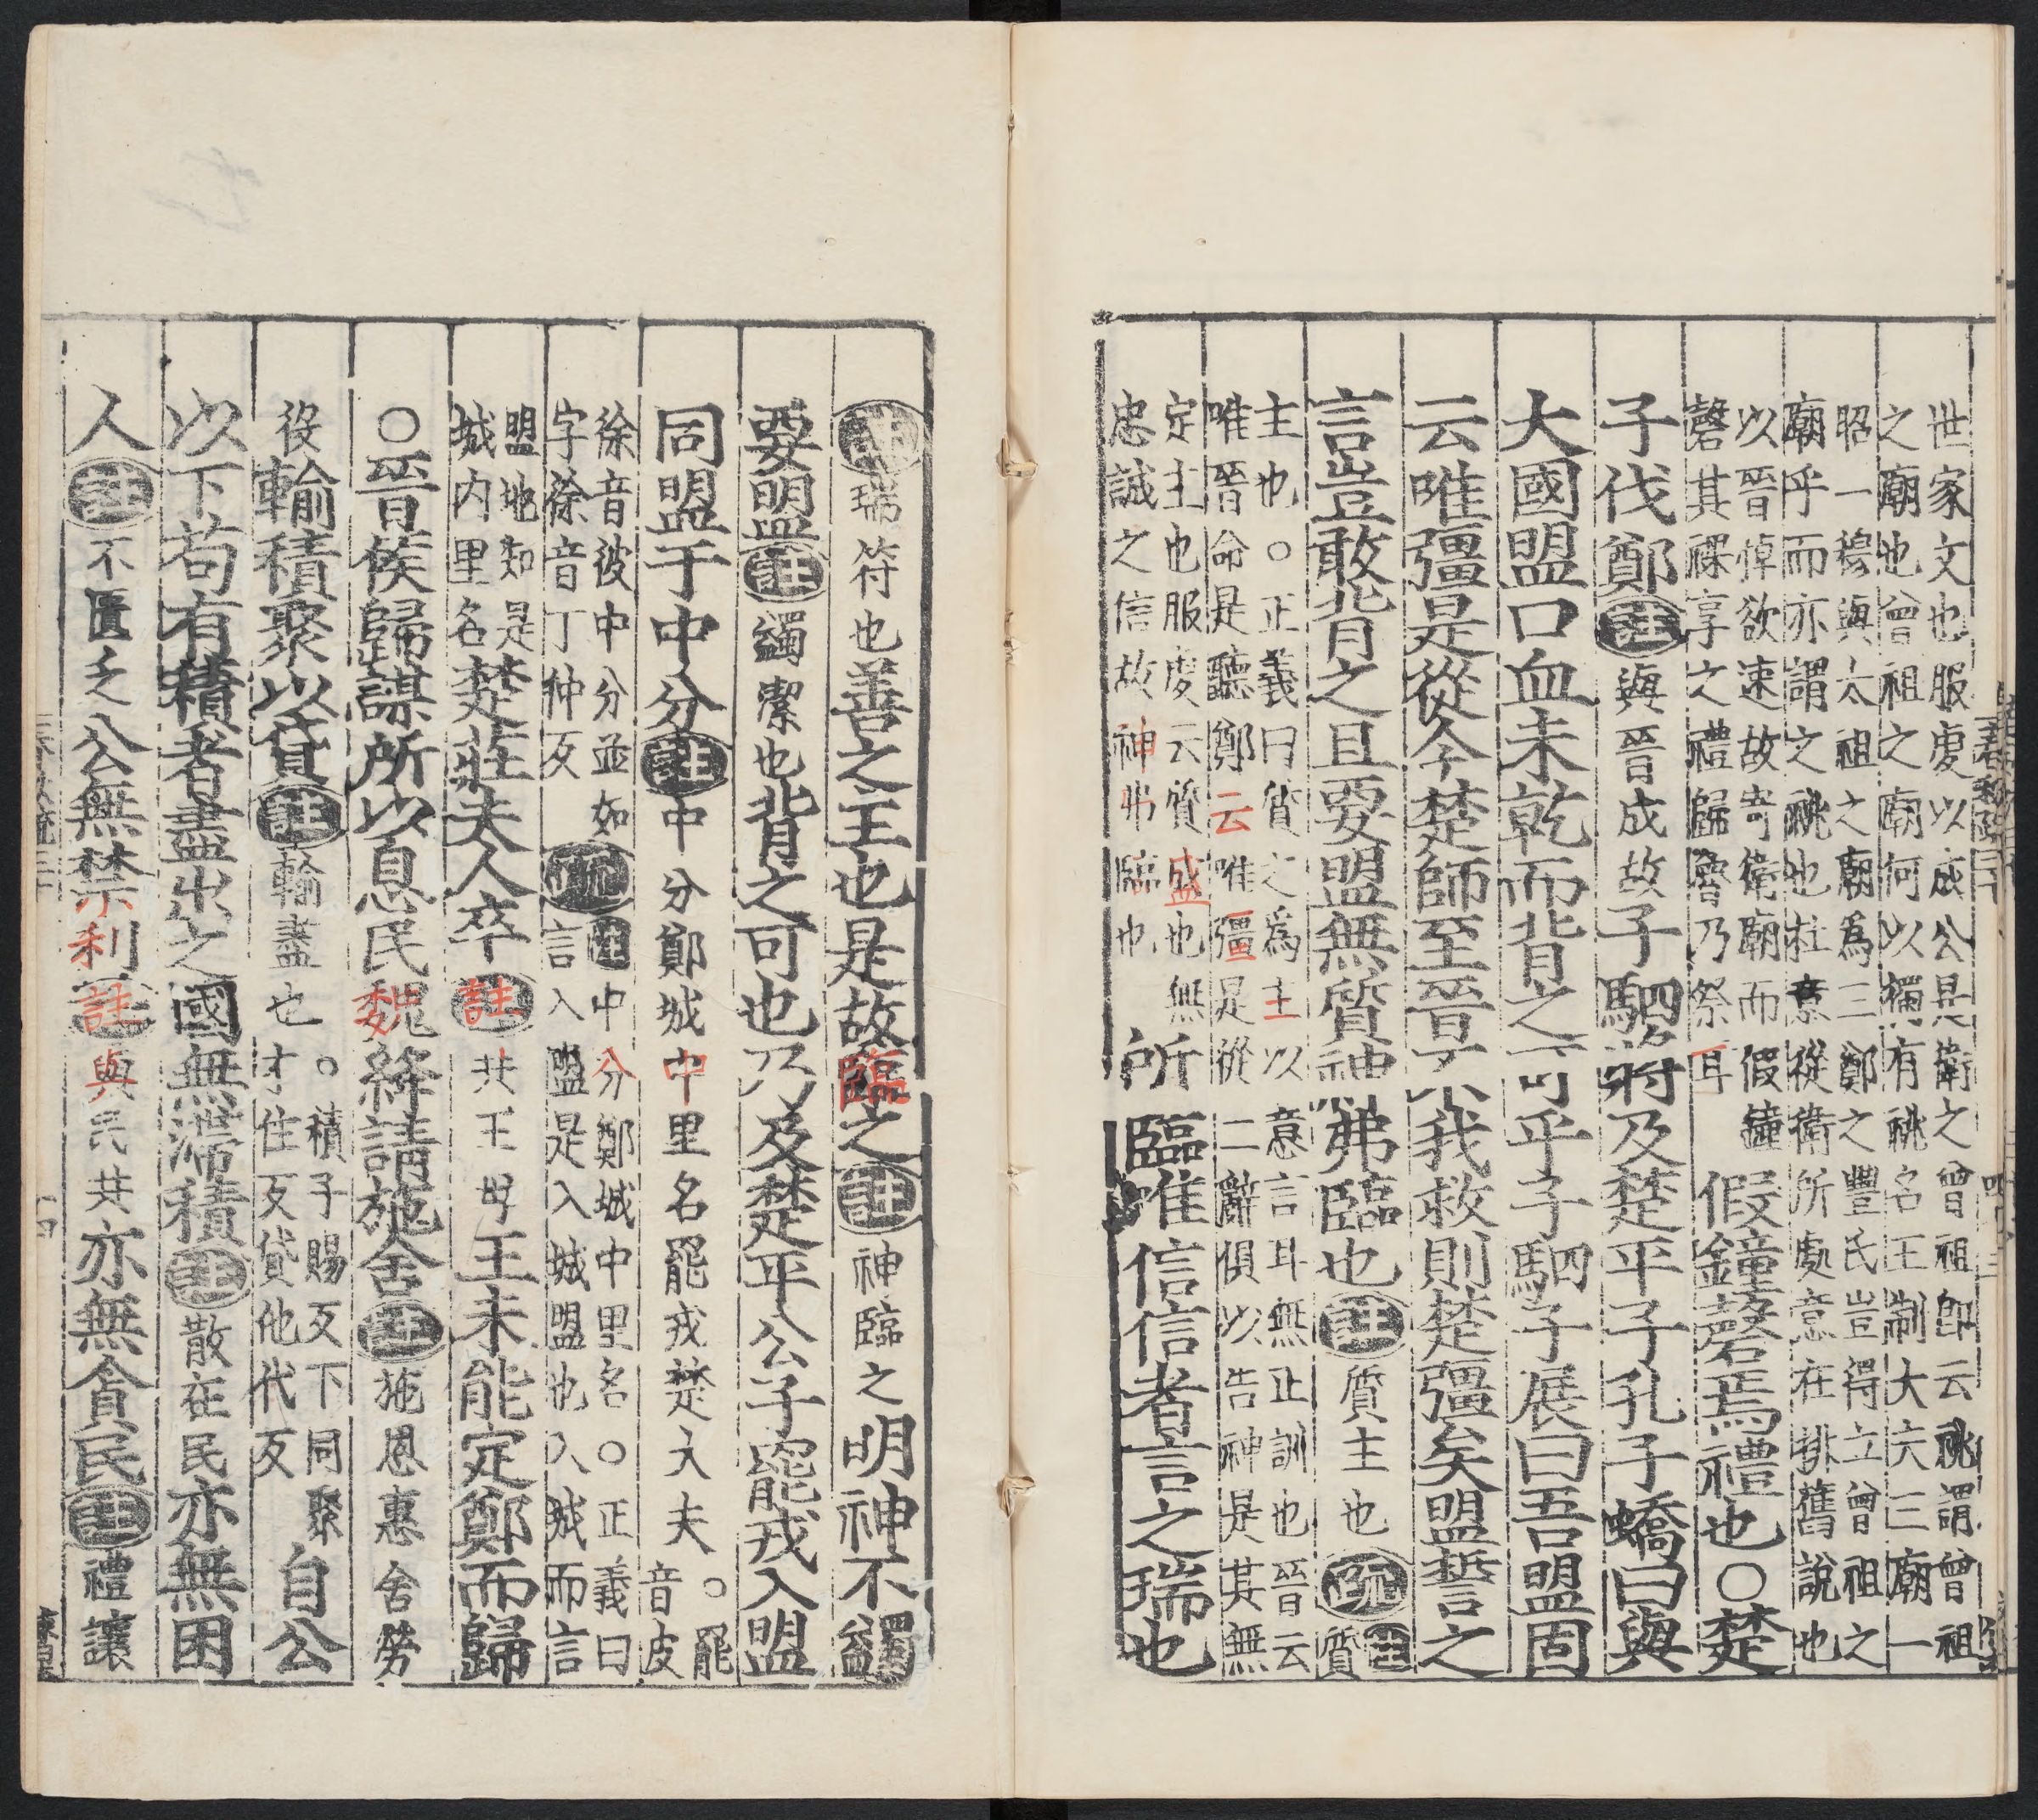 世家文也服虔以成公是衛之曾祖卽云祧謂曾祖
之廟也曾祖之廟何以獨有祧名王制大六三廟一
昭一穆與太祖之廟爲三鄭之豐氏豈得立曾祖之
廟乎而亦謂之祧也杜意從衛所處意在排舊說也
以晉悼欲速故寄衛廟而假鐘
磬其祼享之禮歸魯乃祭耳
假鐘磬焉禮也○楚
子伐鄭註與晉成故子駟將及楚平子孔子蟜曰與
大國盟口血未乾而背之可乎子駟子展曰吾盟固
云唯彊是從今楚師至晉不我救則楚彊矣盟誓之
言豈敢背之且要盟無質神弗臨也註質主也疏註質
主也○正義曰質之爲主以意言耳無正訓也晉云
唯晉命是聽鄭云唯彊是從二辭俱以告神是其無
定主也服虔云質盛也無
忠誠之信故神弗臨也
所臨唯信信者言之瑞也
註瑞符也善之主也是故臨之註神臨之明神不蠲
要盟註蠲潔也背之可也乃及楚平公子罷戎入盟
同盟于中分註中分鄭城中里名罷戎楚大夫○罷
音皮
徐音彼中分並如
字徐音丁仲反
疏註中分鄭城中里名○正義曰
言入盟是入城盟也入城而言
盟地知是
城内里名
楚莊夫人卒註共王母王未能定鄭而歸
○晉侯歸謀所以息民魏絳請施舍註施恩惠舍勞
役輸積聚以貸註輸盡也
○積子賜反下同聚
才住反貸他代反
自公
以下苟有積者盡出之國無滯積註散在民亦無困
人註不匱乏公無禁利註與民共亦無貪民註禮讓